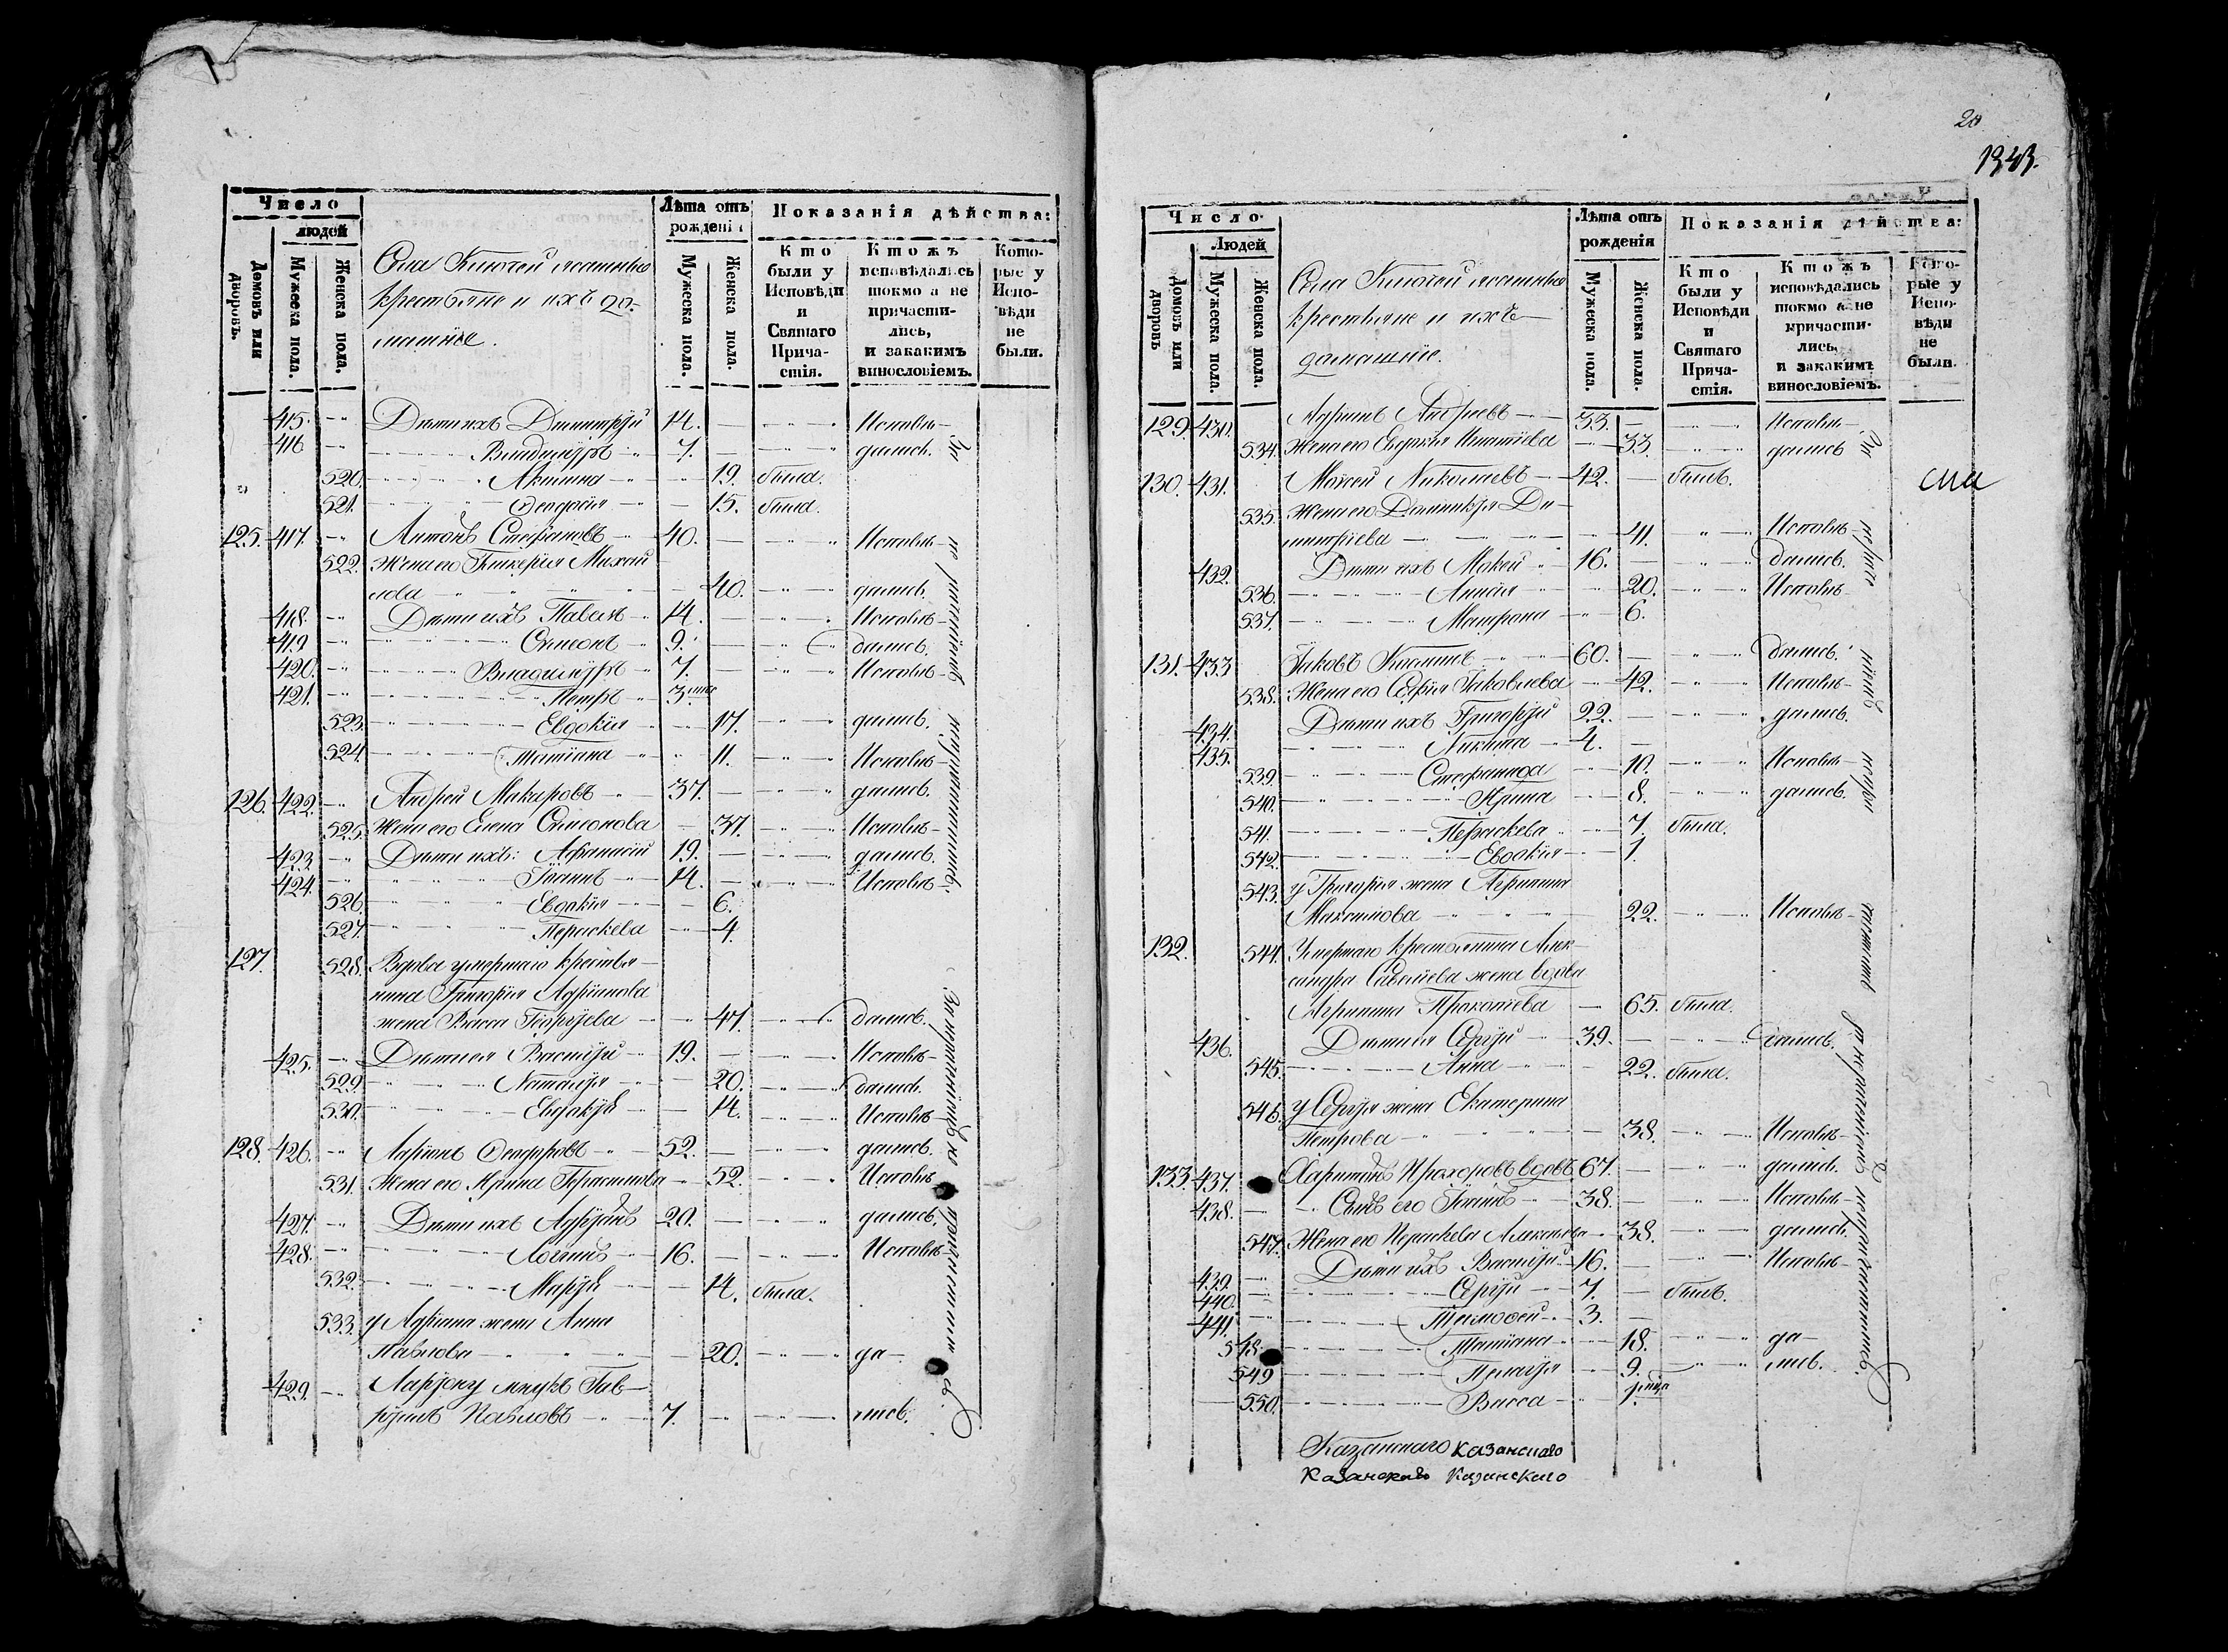 Число
людей
Домовъ или дворовъ.
Мужеска пола.
Женска пола.
Села Ключей ясашные
крестьяне и ихъ до-
машніе.
Лѣта отъ рожденія
Мужеска пола.
Женска пола.
Показанія дѣйства:
Кто были у Исповѣди и Святаго Прича-стія.
Ктожъ исповѣдались токмо а не причасти-лись, и закакимъ винословіемъ.
Кото-рые у Испо-вѣди не были.
415. Дѣти ихъ Димитрій 14. Исповѣ-
416 Владимиръ 7. дались. За
520. Акилина 19. была.
521. Феодосія 15. была.
125. 417. Антонъ Стефановъ 40. Исповѣ-
522. Жена его Гликерія Михай
лова 40. дались.
418. Дѣти ихъ Павелъ 14. Исповѣ-
419 Симеонъ 9. дались.
420. Владимиръ 7. Исповѣ-
421. Петръ 3
523. Евдокія 17. дались.
524. Татіана 11. Исповѣ-
126. 422. Андрей Макаровъ 37. дались.
525. Жена его Елена Симеонова 37. Исповѣ-
423 Дѣти ихъ: Афанасій 19. дались.
424. Іоаннъ 14. Исповѣ-
526. Евдокія 6.
527. Параскева 4.
127. 528. Вдова умершаго крестья-
нина Григорія Адріанова
жена Васса Георгіева 47. дались.
425. Дѣти ея Василій 19. Исповѣ-
529. Наталія 20. дались.
530. Евдокія 14. Исповѣ-
128. 426. Ларіонъ Феодоровъ 52. дались.
531. Жена его Ирина Герасимова 52. Исповѣ-
427. Дѣти ихъ Адріанъ 20. дались.
428. Логинъ 16. Исповѣ-
532. Марія 14. была.
533. у Адріана жена Анна
Павлова 20. да-
429. Ларіону внукъ Гав-
ріилъ Павловъ 7. лись.
За нераченіемъ не причастились.
20
1343.
Число
Людей
Домовъ или дворовъ
Мужеска пола.
Женска пола.
Села Ключей ясашные
крестьяне и ихъ
домашніе.
Лѣта отъ рожденія
Мужеска пола.
Женска пола.
Показанія дѣйства:
Кто были у Исповѣди и Святаго Прича-стія.
Ктожъ исповѣдались токмо а не причасти-лись, и закакимъ винословіемъ.
Кото-рые у Испо-вѣди не были.
129. 430. Адріанъ Андреевъ 33. Исповѣ-
534. Жена его Евдокія Игнатіева 33. дались За
130. 431. Моисей Николаевъ 42. былъ.
сла
535. Жена его Домникія Ди-
митріева 41. Исповѣ-
432. Дѣти ихъ Мокей 16. дались.
536. Анисія 20. Исповѣ-
537. Матрона 6.
131. 433 Іаковъ 60. дались.
538. Жена его Софія Іаковлева 42. Исповѣ-
434. Дѣти ихъ Григорій 22. дались.
435. Никита 4.
539. Стефанида 10. Исповѣ-
540. Ирина 8. дались.
541. Параскева 7. была.
542. Евдокія 1
543. у Григорія жена Агрипина
Максимова 22. Исповѣ-
132. 544. Умершаго крестьянина Алек-
сандра Савельева жена вдова
Агрипина Прокопіева 65. была.
436. Дѣти ея Сергій 39. дались.
545. Анна 22. была.
546. у Сергія жена Екатерина
Петрова 38. Исповѣ-
133. 437. Харитонъ Прохоровъ вдовъ 67. дались.
438. Сынъ его Іоаннъ 38. Исповѣ-
547. Жена его Параскева Алексіева 38. дались.
439. Дѣти ихъ Василій 16. Исповѣ-
440. Сергій 7. былъ.
441. Тимофей 3.
548. Татіана 18. да-
549 Пелагія 9. лись.
550. Васса 1.
за нераченіемъ непричастились.
Казанскаго Казанскаго
Казанскаго Казанскаго